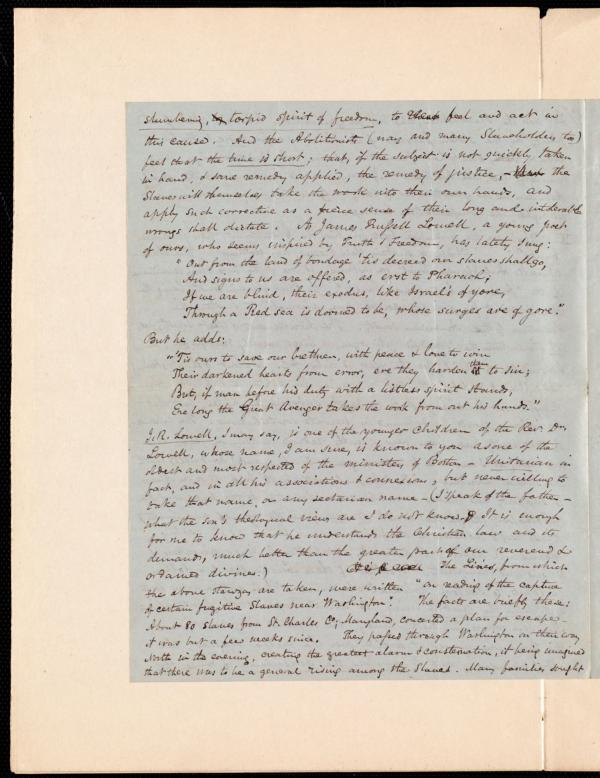 slumbering, torpid spirit of freedom, to feel and act in
this cause. And the Abolitionists (nay and many Slaveholders too)
feel that the time is short; that, if the subject is not quickly taken
in hand, & some remedy applied, the remedy of justice, – the
Slaves will themselves take the work into their own hands, and
apply such corrective as a fierce sense of their long and intolerable
wrongs shall dictate. As James Russell Lowell, a young poet
of ours, who seems inspired by Truth & Freedom, has lately sung:
"Out from the land of bondage 'tis decreed our slaves shall go,
And signs to us are offered, as erst to Pharaoh;
If we are blind, their exodus, like Israel's of yore,
Through a Red sea is doomed to be, whose surges are of gore."
But he adds:
"'Tis ours to save our brethren, with peace & love to win
Their darkened hearts from error, ere they harden them to sin;
But, if man before his duty with a listless spirit stands,
Ere long the Great Avenger takes the work from out his hands."
J. R. Lowell, I may say, is one of the younger children of the Rev. Dr.
Lowell, whose name, I am sure, is known to you as one of the
oldest and most respected of the ministers of Boston – Unitarian in
fact, and in all his associations & connexions; but never willing to
take that name, or any sectarian name – (I speak of the father –
what the son's theological views are I do not know. It is enough
for me to know that he understands the Christian law and its
demands, much better than the greater part of our reverend &
ordained divines.) The Lines, from which
the above stanzas are taken, were written "on reading of the capture
of certain fugitive Slaves near Washington." The facts are briefly these:
About 80 slaves from St. Charles Co., Maryland, concerted a plan for escape –
it was but a few weeks since. They passed through Washington on their way
North in the evening, creating the greatest alarm & consternation, it being imagined
that there was to be a general rising among the Slaves. Many families sought